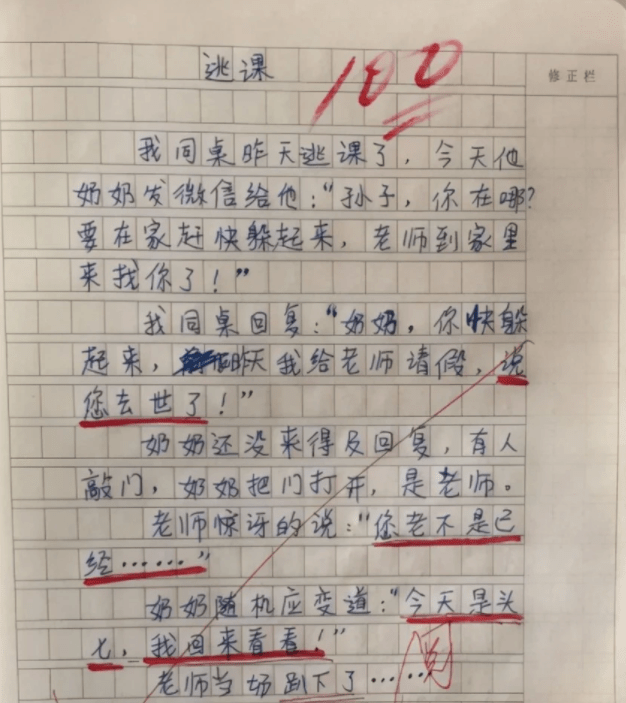 逃课
100
修正栏
我同桌昨天逃课了，今天他
奶奶发微信给他："孙子，你在哪?
要在家赶快躲起来，老师到家里
来找你了！"
我同桌回复："奶奶，你快躲
起来，昨天我给老师请假，说
您去世了！"
奶奶还没来得及回复，有人
敲门，奶奶把门打开，是老师。
老师惊讶的说："您老不是已
经……"
奶奶随机应变道："今天是头
七，我回来看看！"
老师当场趴下了……
阅